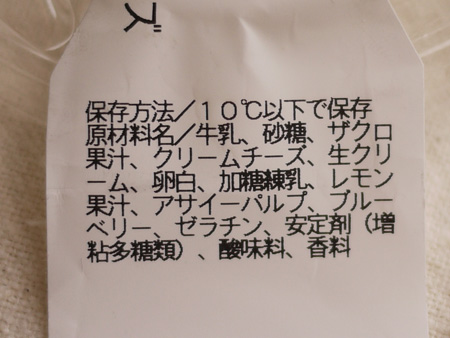 ズ
保存方法／１０℃以下で保存
原材料名／牛乳、砂糖、ザクロ
果汁、クリームチーズ、生クリ
ーム、卵白、加糖練乳、レモン
果汁、アサイーパルプ、ブルー
ベリー、ゼラチン、安定剤（増
粘多糖類）、酸味料、香料